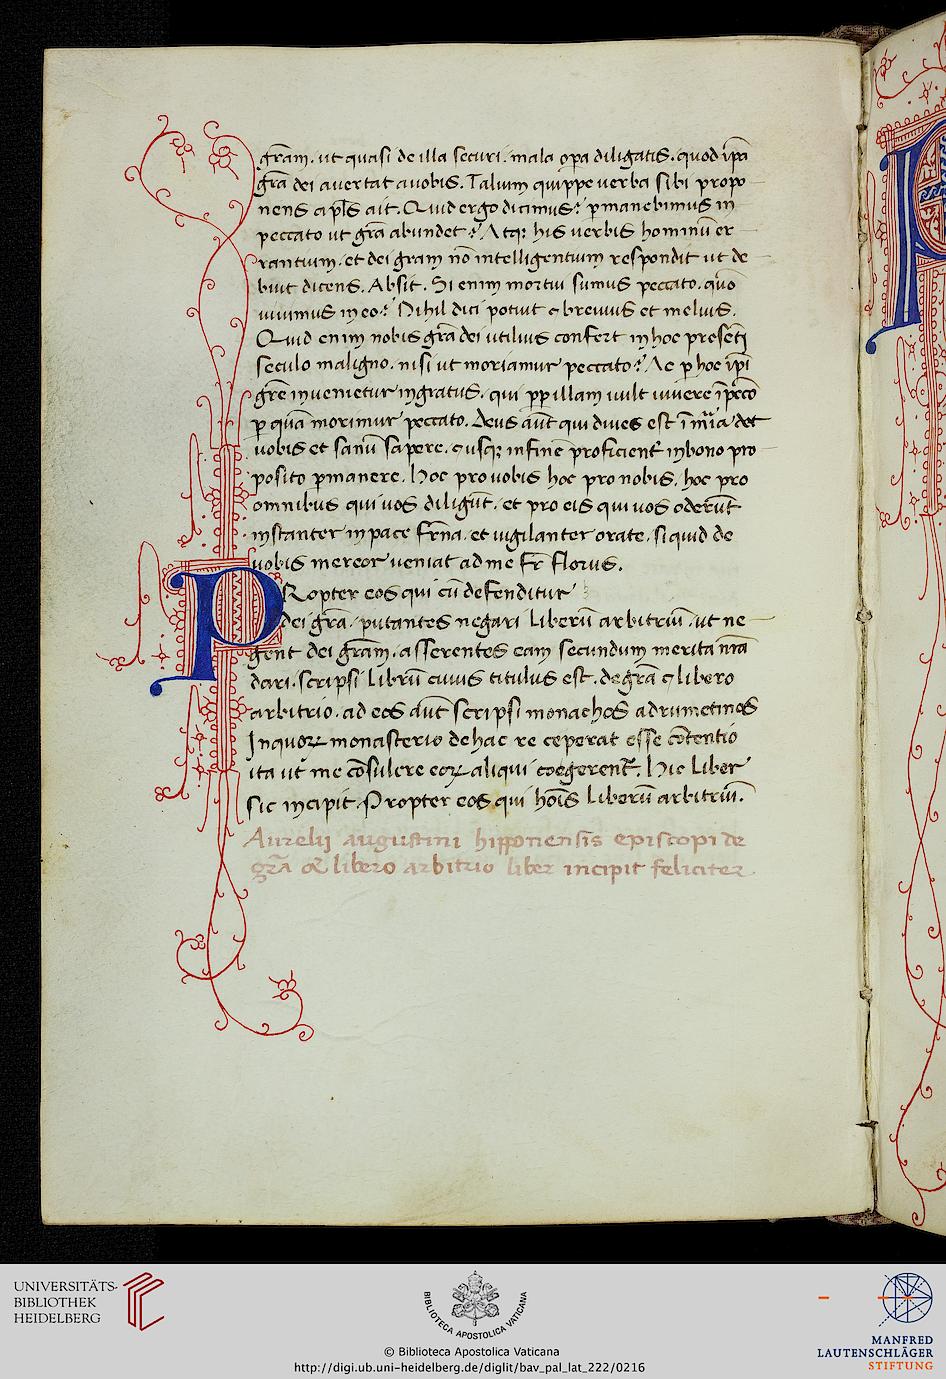 gr̄am. ut quasi de illa securi. mala op̄a diligatis. quod ip̄a
gr̄a dei avertat avobis. Talium quippe verba sibi propo
nens ap̄l̄s ait. Quid ergo dicimus? p̄manebimus in
peccato ut gr̄a abundet? Atq; his verbis hominū er
rantium. et dei gr̄am nō intelligentium respondit ut de
buit dicens. Absit. Si enim mortui sumus peccato. quō
vivimus in eo? Nihil dici potuit ⁊ brevius et melius.
Quid enim nobis gr̄a dei utilius confert in hoc presenti
seculo maligno. nisi ut moriamur peccato? Ac p̄ hoc ip̄i
gr̄e invenietur ingratus. qui pp̄ illam vult vivere ī pccō
p̄ quā morimur peccato. Deus aūt qui dives est ī mīa det
vobis et sanū sapere. ⁊ usq; in finē proficient̄ in bono pro
posito p̄manere. Hoc pro vobis hoc pro nobis. hoc pro
omnibus qui vos diligūt. et pro eis qui vos oderūt
instanter in pace fr̄na. et vigilanter orate. si quid de
vobis mereor veniat ad me fr̄ Florus.
PRopter eos qui cū defenditur
dei gr̄a. putantes negari liberū arbitriū. ut ne
gent dei gr̄am. asserentes eam secundum merita nr̄a
dari. scripsi librū cuius titulus est. de gr̄a ⁊ libero
arbitrio. ad eos aūt scripsi monachos adrumetinos
In quoꝝ monasterio de hac re ceperat esse cōtentio
ita ut me cōsulere eoꝝ aliqui coegerent̄. Hic liber
sic incipit. Propter eos qui hoīs liberū arbitriū.
Aurelij augustini hipponensis episcopi de
gr̄a & libero arbitrio liber incipit feliciter
UNIVERSITÄTS-
BIBLIOTHEK
HEIDELBERG
BIBLIOTECA APOSTOLICA VATICANA
© Biblioteca Apostolica Vaticana
http://digi.ub.uni-heidelberg.de/diglit/bav_pal_lat_222/0216
MANFRED
LAUTENSCHLÄGER
STIFTUNG